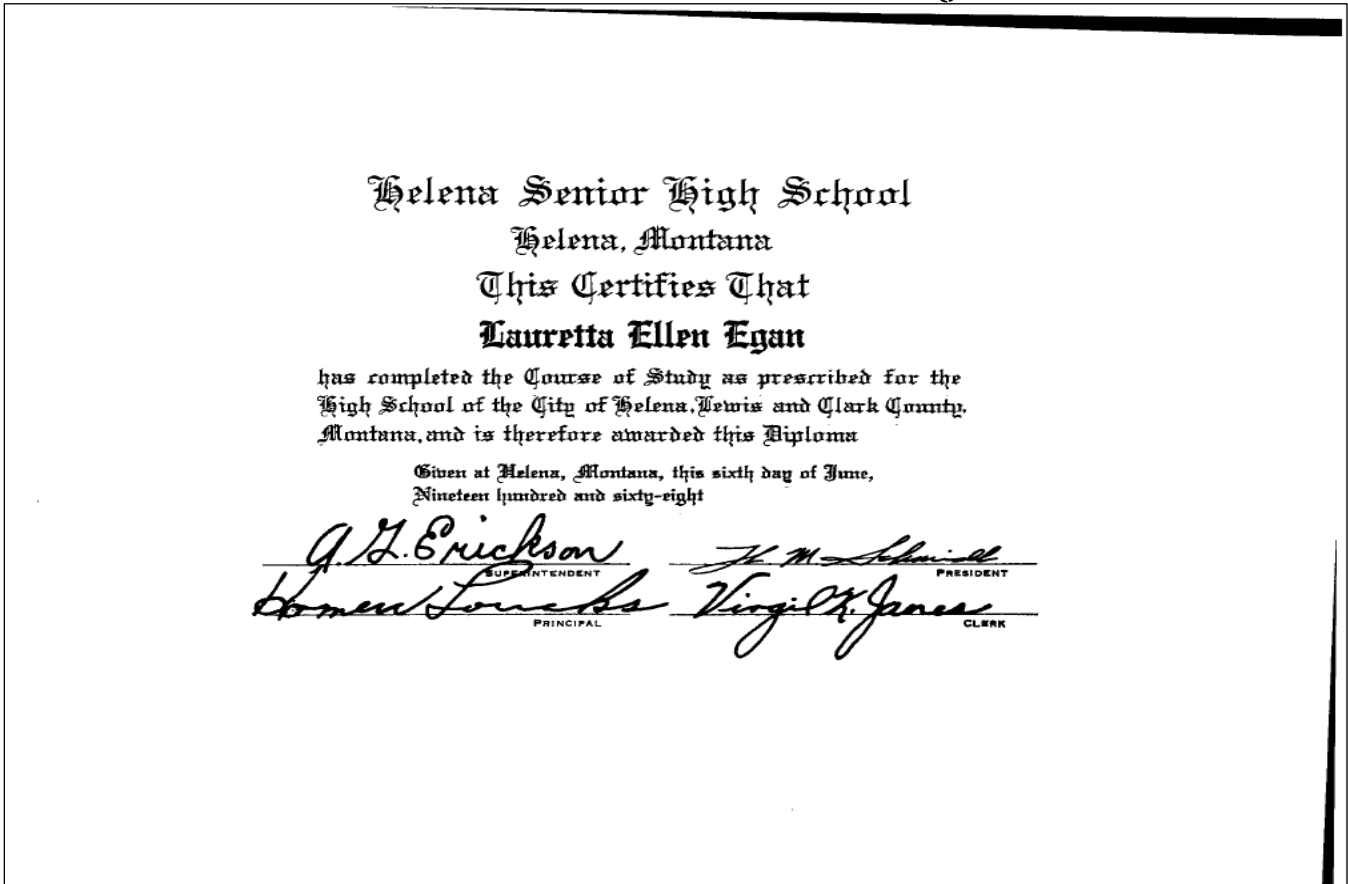 Helena Senior High School
Helena, Montana
This Certifies That
Lauretta Ellen Egan
has completed the Course of Study as prescribed for the
High School of the City of Helena, Lewis and Clark County,
Montana, and is therefore awarded this Diploma
Given at Helena, Montana, this sixth day of June,
Nineteen hundred and sixty-eight
Erickson
SUPERINTENDENT
PRESIDENT
Homer Loucks
Virgil K. James
PRINCIPAL
CLERK